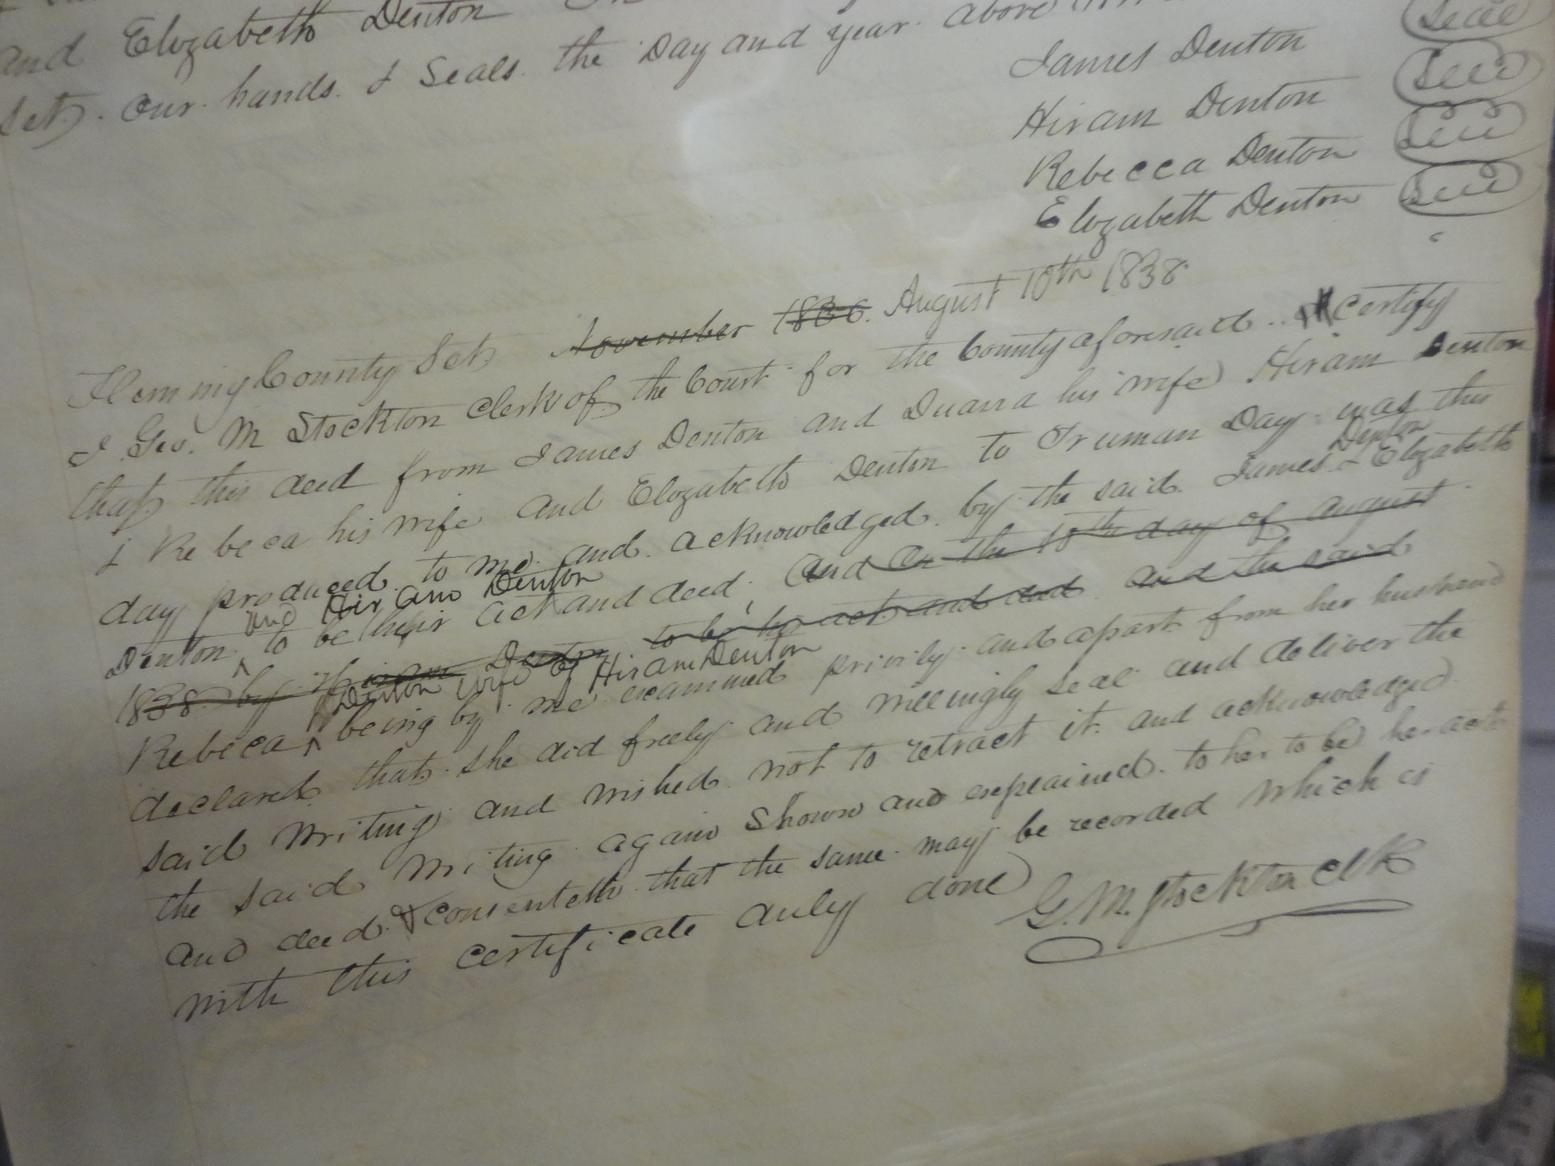 and Elizabeth Denton
set. our hands. & Seals. the Day and year above
James Denton Seal
Hiram Denton Seal
Rebecca Denton Seal
Elizabeth Denton Seal
Fleming County Sct. November 1836. August 10th 1838
I Geo. M Stockton Clerk of the Court for the County aforesaid certify
that this deed from James Denton and his wife Hiram Denton
& Rebeca his wife and Elizabeth Denton to Truman Day was this
day produced to me and acknowledged by the said James Denton & Elizabeth
Denton and Hiram Denton to be their act and deed. And on the 10th day of August
1838 by Hiram Denton to be his act and deed and the said
Rebeca Denton wife of Hiram Denton being by me examined privily and apart from her husband
declared that she did freely and willingly seal and deliver the
said writing and wished not to retract it and acknowledged
the said writing again shown and explained to her to be her act
and deed & consenteth that the same may be recorded which is
with this certificate duly done G. M. Stockton Clk